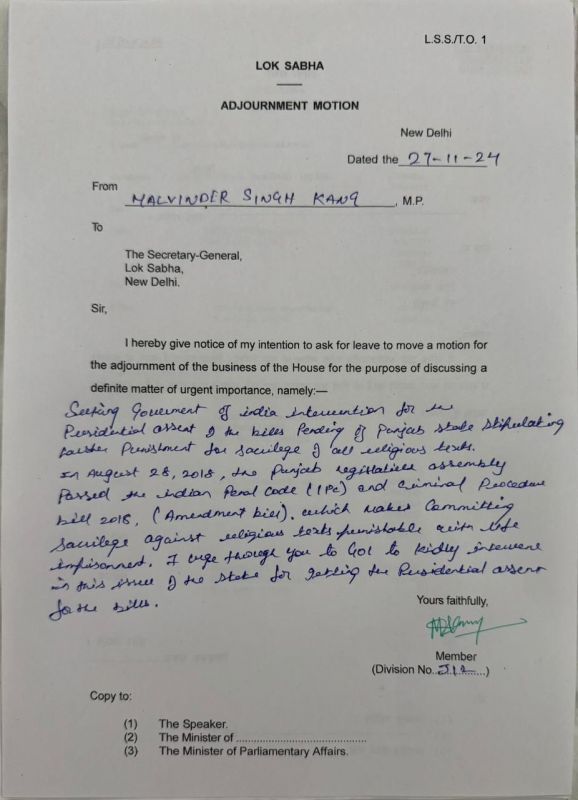 L.S.S./T.O. 1
LOK SABHA
ADJOURNMENT MOTION
New Delhi
Dated the 27-11-24
From
MALVINDER SINGH KANG, M.P.
To
The Secretary-General,
Lok Sabha,
New Delhi.
Sir,
I hereby give notice of my intention to ask for leave to move a motion for
the adjournment of the business of the House for the purpose of discussing a
definite matter of urgent importance, namely:—
Seeking Government of india intervention for the
Presidential assent of the bills Pending of Punjab state Stipulating
harsher Punishment for Sacrilege of all religious texts.
In August 28, 2018, the Punjab legislative assembly
Passed the indian Penal Code (IPC) and Criminal Procedure
bill 2018, (Amendment bill), which makes Committing
Sacrilege against religious texts punishable with life
imprisonment. I urge through you to GoI to kindly intervene
in this issue of the state for getting the Presidential assent
for the bills.
Yours faithfully,
Member
(Division No. ...........)
Copy to:
(1) The Speaker.
(2) The Minister of ..........................................
(3) The Minister of Parliamentary Affairs.